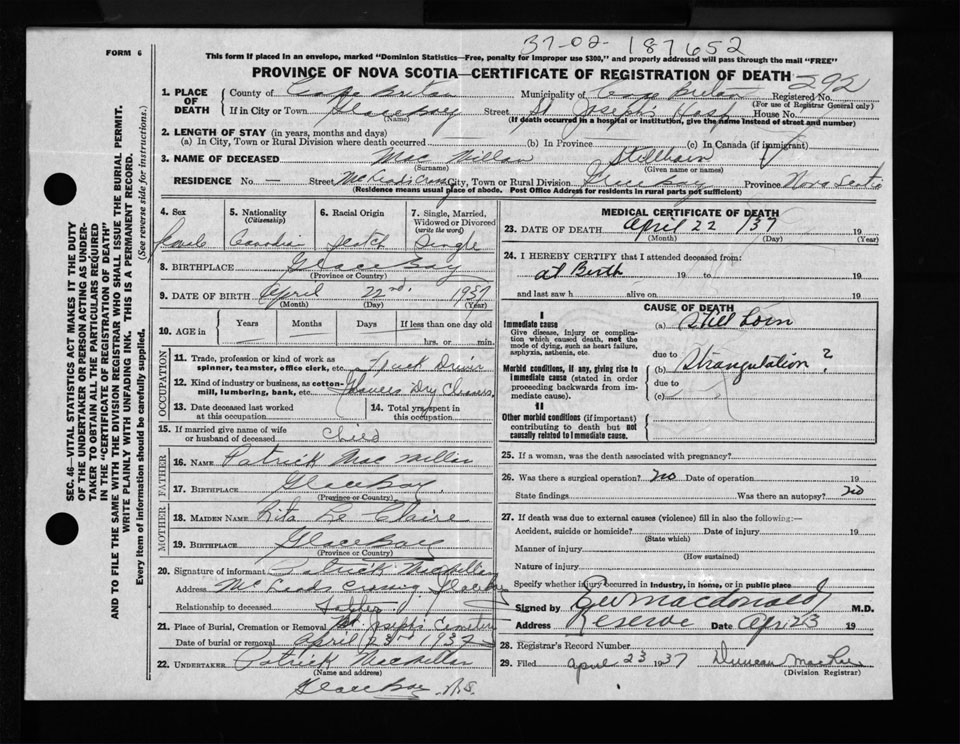 37-02-187652
FORM 6
This form if placed in an envelope, marked "Dominion Statistics—Free, penalty for improper use $300," and properly addressed will pass through the mail "FREE"
PROVINCE OF NOVA SCOTIA—CERTIFICATE OF REGISTRATION OF DEATH 292
1. PLACE OF DEATH County of Cape Breton Municipality of Cape Breton Registered No.
(For use of Registrar General only)
If in City or Town Glace Bay Street St Josephs Hosp House No.
(Name) (If death occurred in a hospital or institution, give the name instead of street and number)
2. LENGTH OF STAY (in years, months and days)
(a) In City, Town or Rural Division where death occurred (b) In Province (c) In Canada (if immigrant)
3. NAME OF DECEASED Mac Millan Stillborn
(Surname) (Given name or names)
RESIDENCE No. — Street City, Town or Rural Division Glace Bay Province Nova Scotia
(Residence means usual place of abode. Post Office Address for residents in rural parts not sufficient)
4. Sex 5. Nationality (Citizenship) 6. Racial Origin 7. Single, Married, Widowed or Divorced (write the word)
Canadian Scotch Single
8. BIRTHPLACE Glace Bay
(Province or Country)
9. DATE OF BIRTH April 22nd. 1937
(Month) (Day) (Year)
10. AGE in Years Months Days If less than one day old
hrs. or min.
OCCUPATION
11. Trade, profession or kind of work as spinner, teamster, office clerk, etc. Truck Driver
12. Kind of industry or business, as cotton-mill, lumbering, bank, etc. Dry Cleaners
13. Date deceased last worked at this occupation 14. Total yrs. spent in this occupation
15. If married give name of wife or husband of deceased Child
FATHER
16. NAME Patrick Mac Millan
17. BIRTHPLACE Glace Bay.
(Province or Country)
MOTHER
18. MAIDEN NAME Rita Le Claire
19. BIRTHPLACE Glace Bay
(Province or Country)
20. Signature of informant Patrick MacMillan
Address Glace Bay
Relationship to deceased Father
21. Place of Burial, Cremation or Removal St Josephs Cemetery
Date of burial or removal April 23rd 1937
22. UNDERTAKER Patrick MacMillan
(Name and address)
Glace Bay N.S.
MEDICAL CERTIFICATE OF DEATH
23. DATE OF DEATH April 22 /37 19
(Month) (Day) (Year)
24. I HEREBY CERTIFY that I attended deceased from:
at Birth 19 to 19
and last saw h alive on 19
CAUSE OF DEATH
I
Immediate cause
Give disease, injury or complication which caused death, not the mode of dying, such as heart failure, asphyxia, asthenia, etc.
(a) Still born
due to
Morbid conditions, if any, giving rise to Immediate cause (stated in order proceeding backwards from immediate cause).
(b) Strangulation ?
due to
(c)
II
Other morbid conditions (if important) contributing to death but not causally related to Immediate cause.
25. If a woman, was the death associated with pregnancy?
26. Was there a surgical operation? No Date of operation 19
State findings Was there an autopsy? No
27. If death was due to external causes (violence) fill in also the following:—
Accident, suicide or homicide? Date of injury 19
(State which)
Manner of injury
(How sustained)
Nature of injury
Specify whether injury occurred in industry, in home, or in public place
Signed by Macdonald M.D.
Address Reserve Date Apr 23 19
28. Registrar's Record Number
29. Filed April 23 1937 Duncan
(Division Registrar)
SEC. 46—VITAL STATISTICS ACT MAKES IT THE DUTY
OF THE UNDERTAKER OR PERSON ACTING AS UNDER-
TAKER TO OBTAIN ALL THE PARTICULARS REQUIRED
IN THE "CERTIFICATE OF REGISTRATION OF DEATH"
AND TO FILE THE SAME WITH THE DIVISION REGISTRAR WHO SHALL ISSUE THE BURIAL PERMIT.
WRITE PLAINLY WITH UNFADING INK. THIS IS A PERMANENT RECORD.
Every item of information should be carefully supplied. (See reverse side for instructions.)